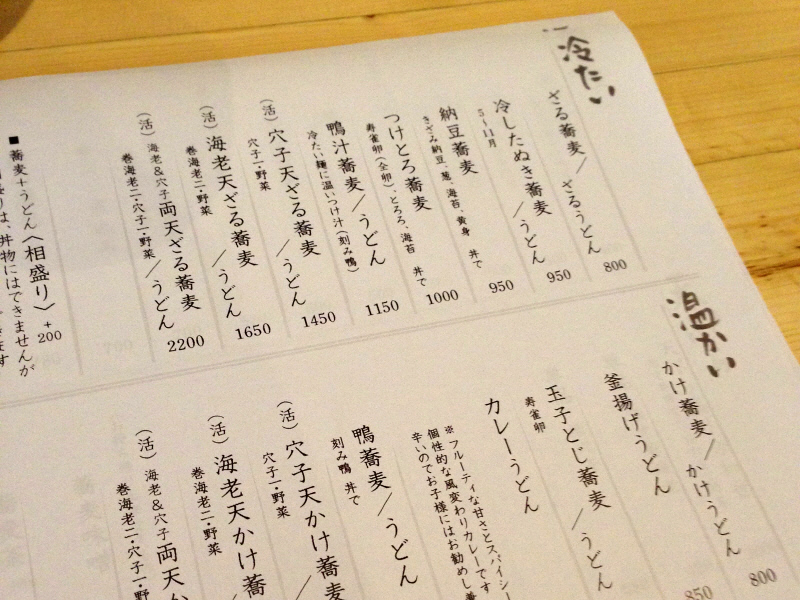 冷たい
ざる蕎麦／ざるうどん
800
冷したぬき蕎麦／うどん
5～11月
950
納豆蕎麦
きざみ納豆、葱、海苔、黄身 丼で
950
つけとろ蕎麦
寿雀卵(全卵)、とろろ、海苔 丼で
1000
鴨汁蕎麦／うどん
冷たい麺に温いつけ汁(刻み鴨)
1150
(活)穴子天ざる蕎麦／うどん
穴子一・野菜
1450
(活)海老天ざる蕎麦／うどん
巻海老二・野菜
1650
(活)海老&穴子 両天ざる蕎麦／うどん
巻海老二・穴子一・野菜
2200
■ 蕎麦＋うどん〈相盛り〉+200
は、丼物にはできませんが
温かい
かけ蕎麦／かけうどん
800
釜揚げうどん
850
玉子とじ蕎麦／うどん
寿雀卵
カレーうどん
※フルーティな甘さとスパイシー
個性的な風変わりカレーです
辛いのでお子様にはお勧めし
鴨蕎麦／うどん
刻み鴨 丼で
(活)穴子天かけ蕎麦
穴子一・野菜
(活)海老天かけ蕎
巻海老二・野菜
(活)海老&穴子 両天か
巻海老二・穴子一・野